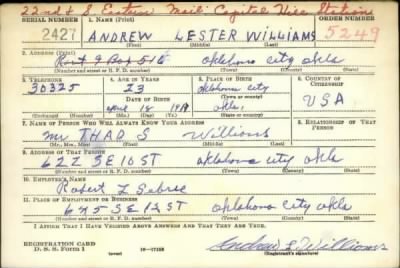 22nd & S. Eastern Mail: Capitol Hill Station
SERIAL NUMBER 1. NAME (Print) ORDER NUMBER
2427 ANDREW LESTER WILLIAMS 5249
(First) (Middle) (Last)
2. ADDRESS (Print)
Rout 9 Box 516 oklahoma city okla
(Number and street or R. F. D. number) (Town) (County) (State)
3. TELEPHONE 4. AGE IN YEARS 5. PLACE OF BIRTH 6. COUNTRY OF CITIZENSHIP
30325 23 oklahoma city
DATE OF BIRTH okla. USA
april 18
(Mo.) (Day) (Yr.) (State or country)
7. NAME OF PERSON WHO WILL ALWAYS KNOW YOUR ADDRESS 8. RELATIONSHIP OF THAT PERSON
mr THAD S Williams
(Mr., Mrs., Miss) (First) (Middle) (Last)
9. ADDRESS OF THAT PERSON
622 SE 10 ST oklahoma city okla
(Number and street or R. F. D. number) (Town) (County) (State)
10. EMPLOYER'S NAME
Robert L
11. PLACE OF EMPLOYMENT OR BUSINESS
SE 12 ST oklahoma city okla
(Number and street or R. F. D. number) (Town) (County) (State)
I AFFIRM THAT I HAVE VERIFIED ABOVE ANSWERS AND THAT THEY ARE TRUE.
REGISTRATION CARD
D. S. S. Form 1 (over) Andrew L Williams